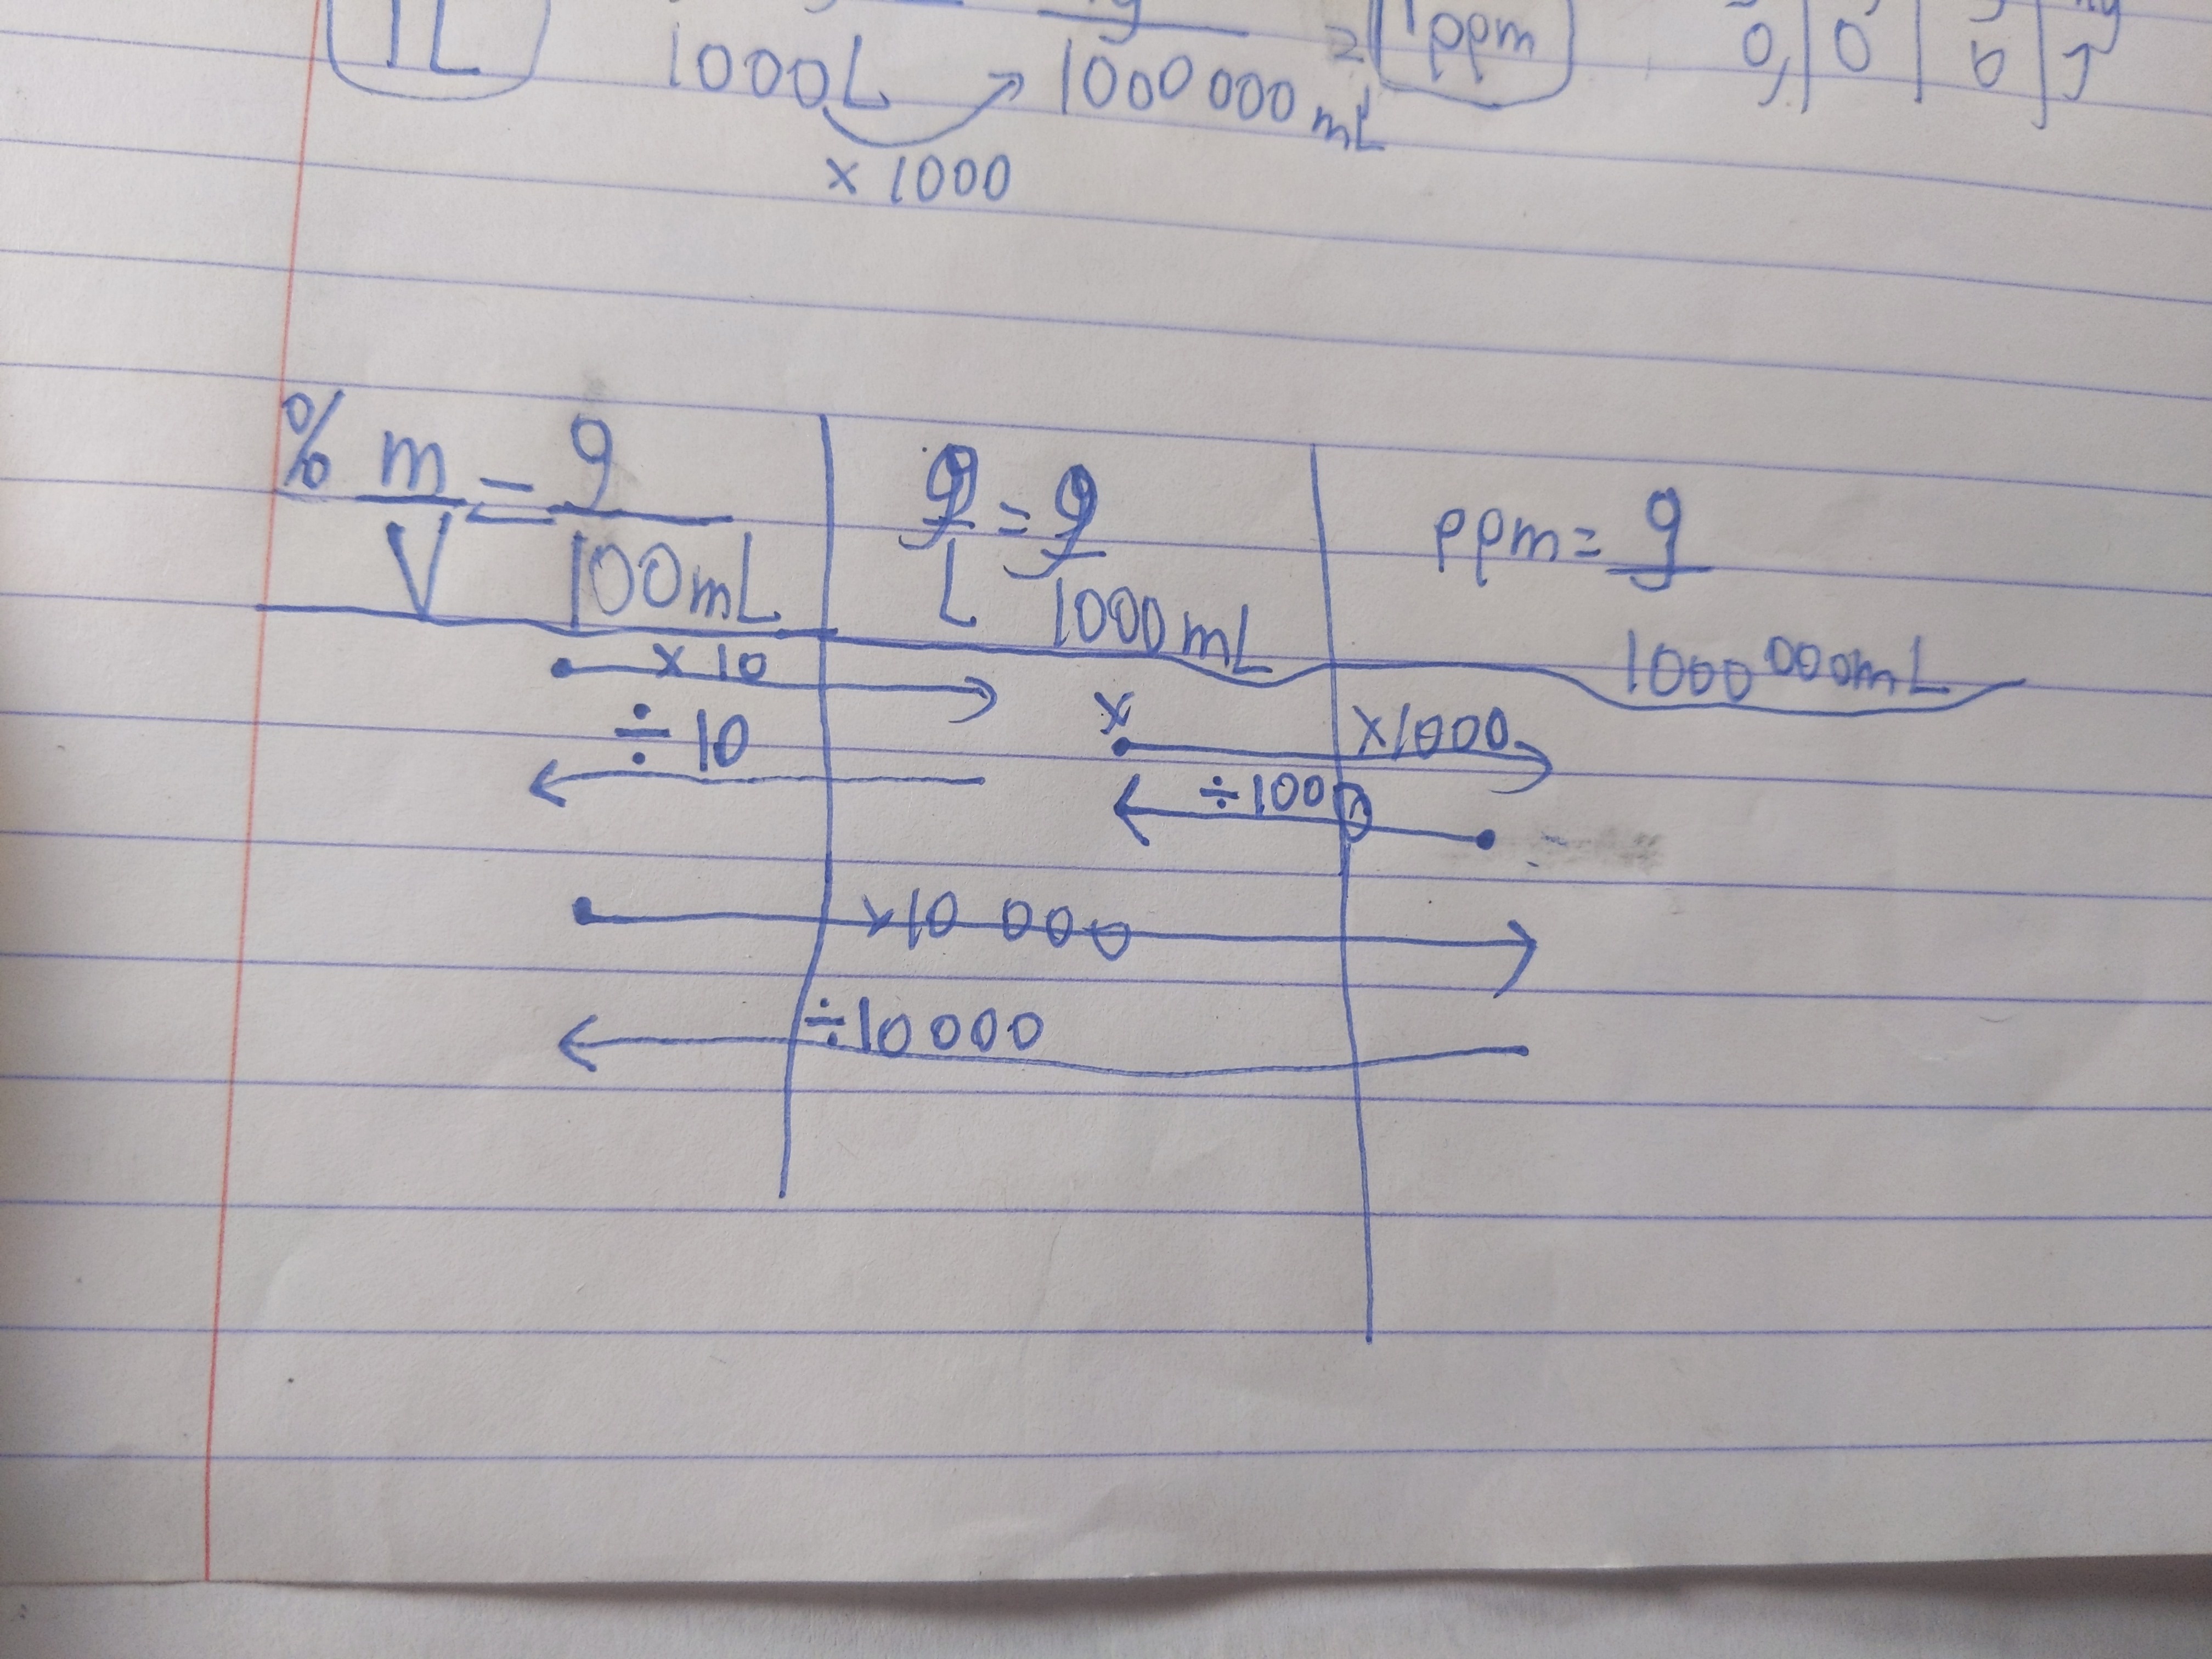 1L
1000L → 1000 000 mL = 1ppm
0, | 0 | 0 | 1
x 1000
% m/V = g/100mL | g/L = g/1000mL | ppm = g/1000 000mL
x 10
÷ 10
x
x1000
÷1000
x10 000
÷10000